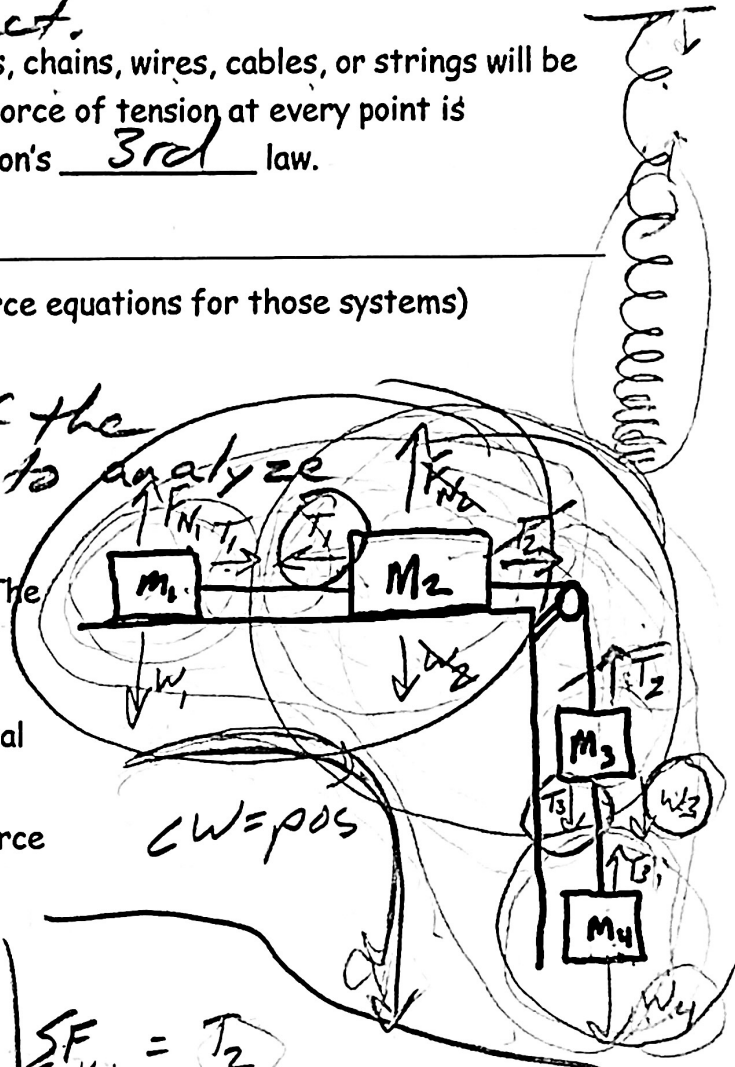 ct.
s, chains, wires, cables, or strings will be
orce of tension at every point is
on's 3rd law.
rce equations for those systems)
f the
to analyze
FN1 T1 T1 FN2 T2
The
M1 M2
W1 W2 T2
al
M3
T3 W3
CW=pos
rce
T3
M4
W4
ΣF = T2